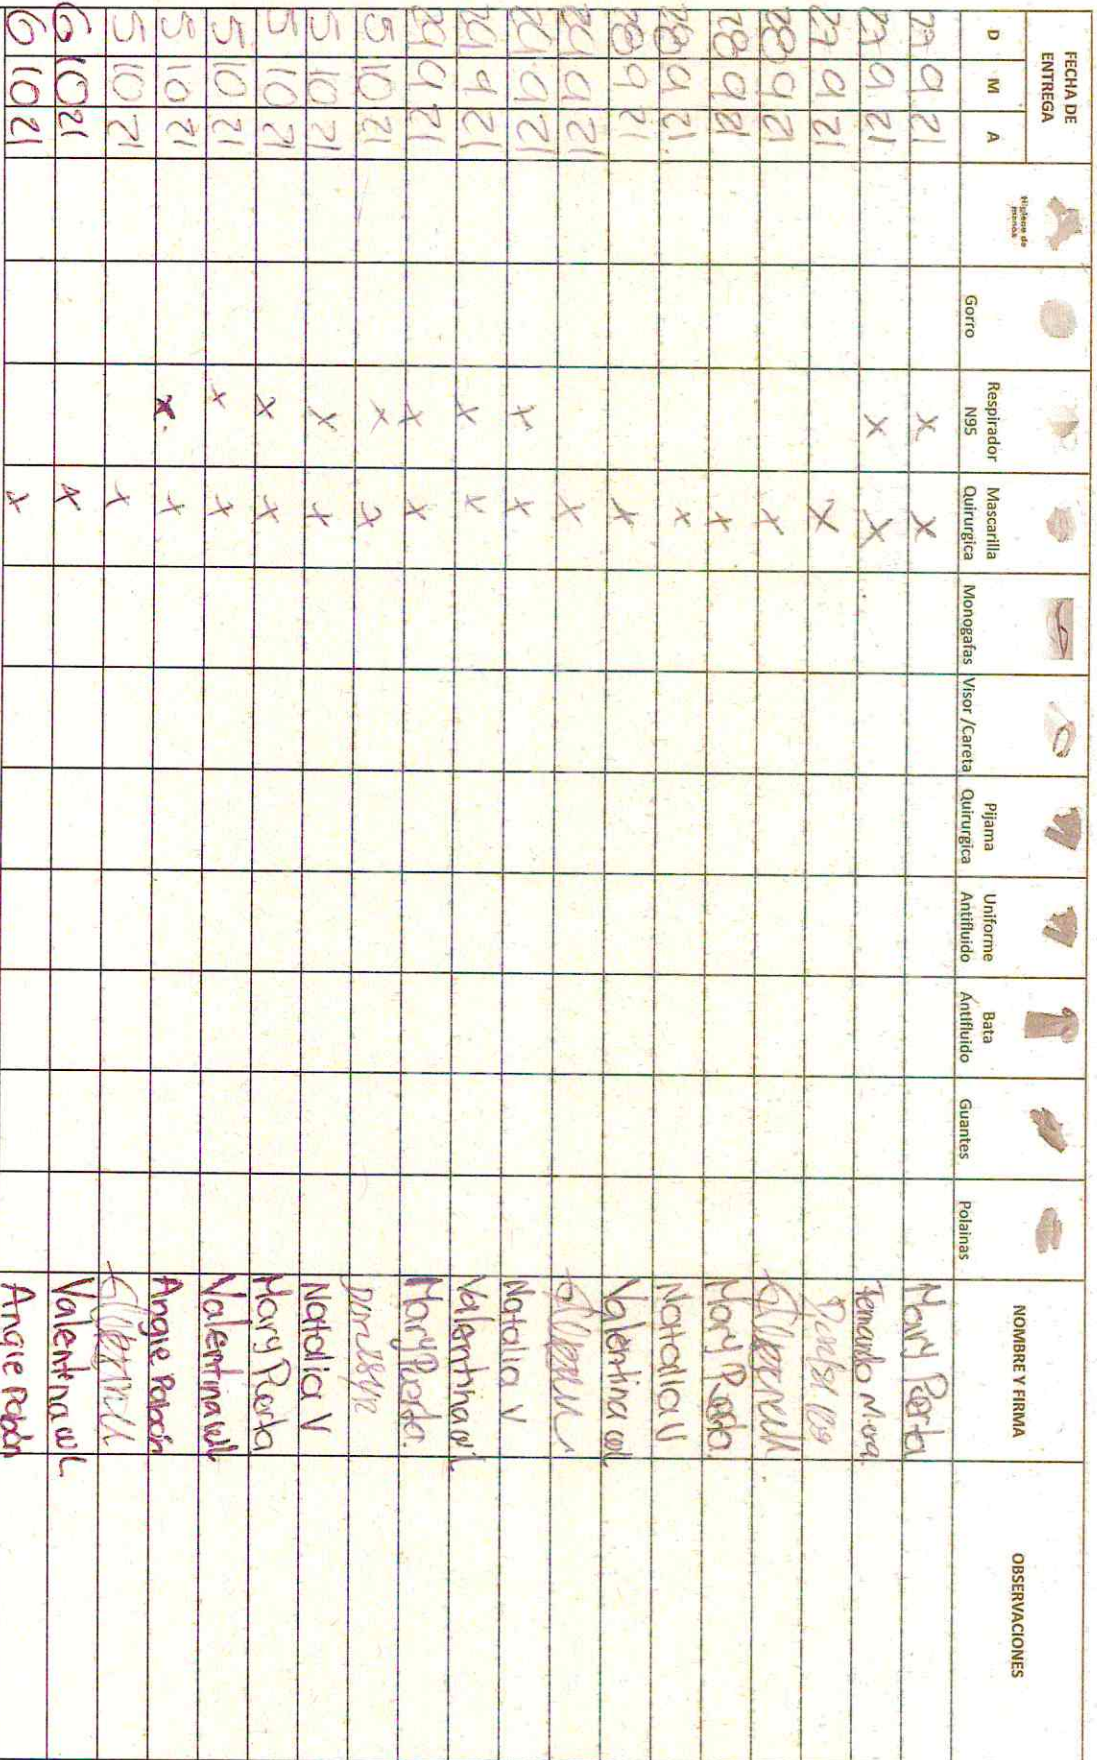 FECHA DE ENTREGA
D M A
Higiene de manos
Gorro
Respirador N95
Mascarilla Quirurgica
Monogafas
Visor /Careta
Pijama Quirurgica
Uniforme Antifluido
Bata Antifluido
Guantes
Polainas
NOMBRE Y FIRMA
OBSERVACIONES
27 9 21 X X Mary Porta
27 9 21 X X Fernando Mora
27 9 21 X
28 9 21 X
28 9 21 X Mary Porta
28 9 21 X Natalia V
28 9 21 X Valentina
29 9 21 X
29 9 21 X X Natalia V
29 9 21 X X Valentina
29 9 21 X X Mary Porta
5 10 21 X X
5 10 21 X X Natalia V
5 10 21 X X Mary Porta
5 10 21 X X Valentina
5 10 21 X X Angie Pabón
5 10 21 X
6 10 21 X Valentina
6 10 21 X Angie Pabón